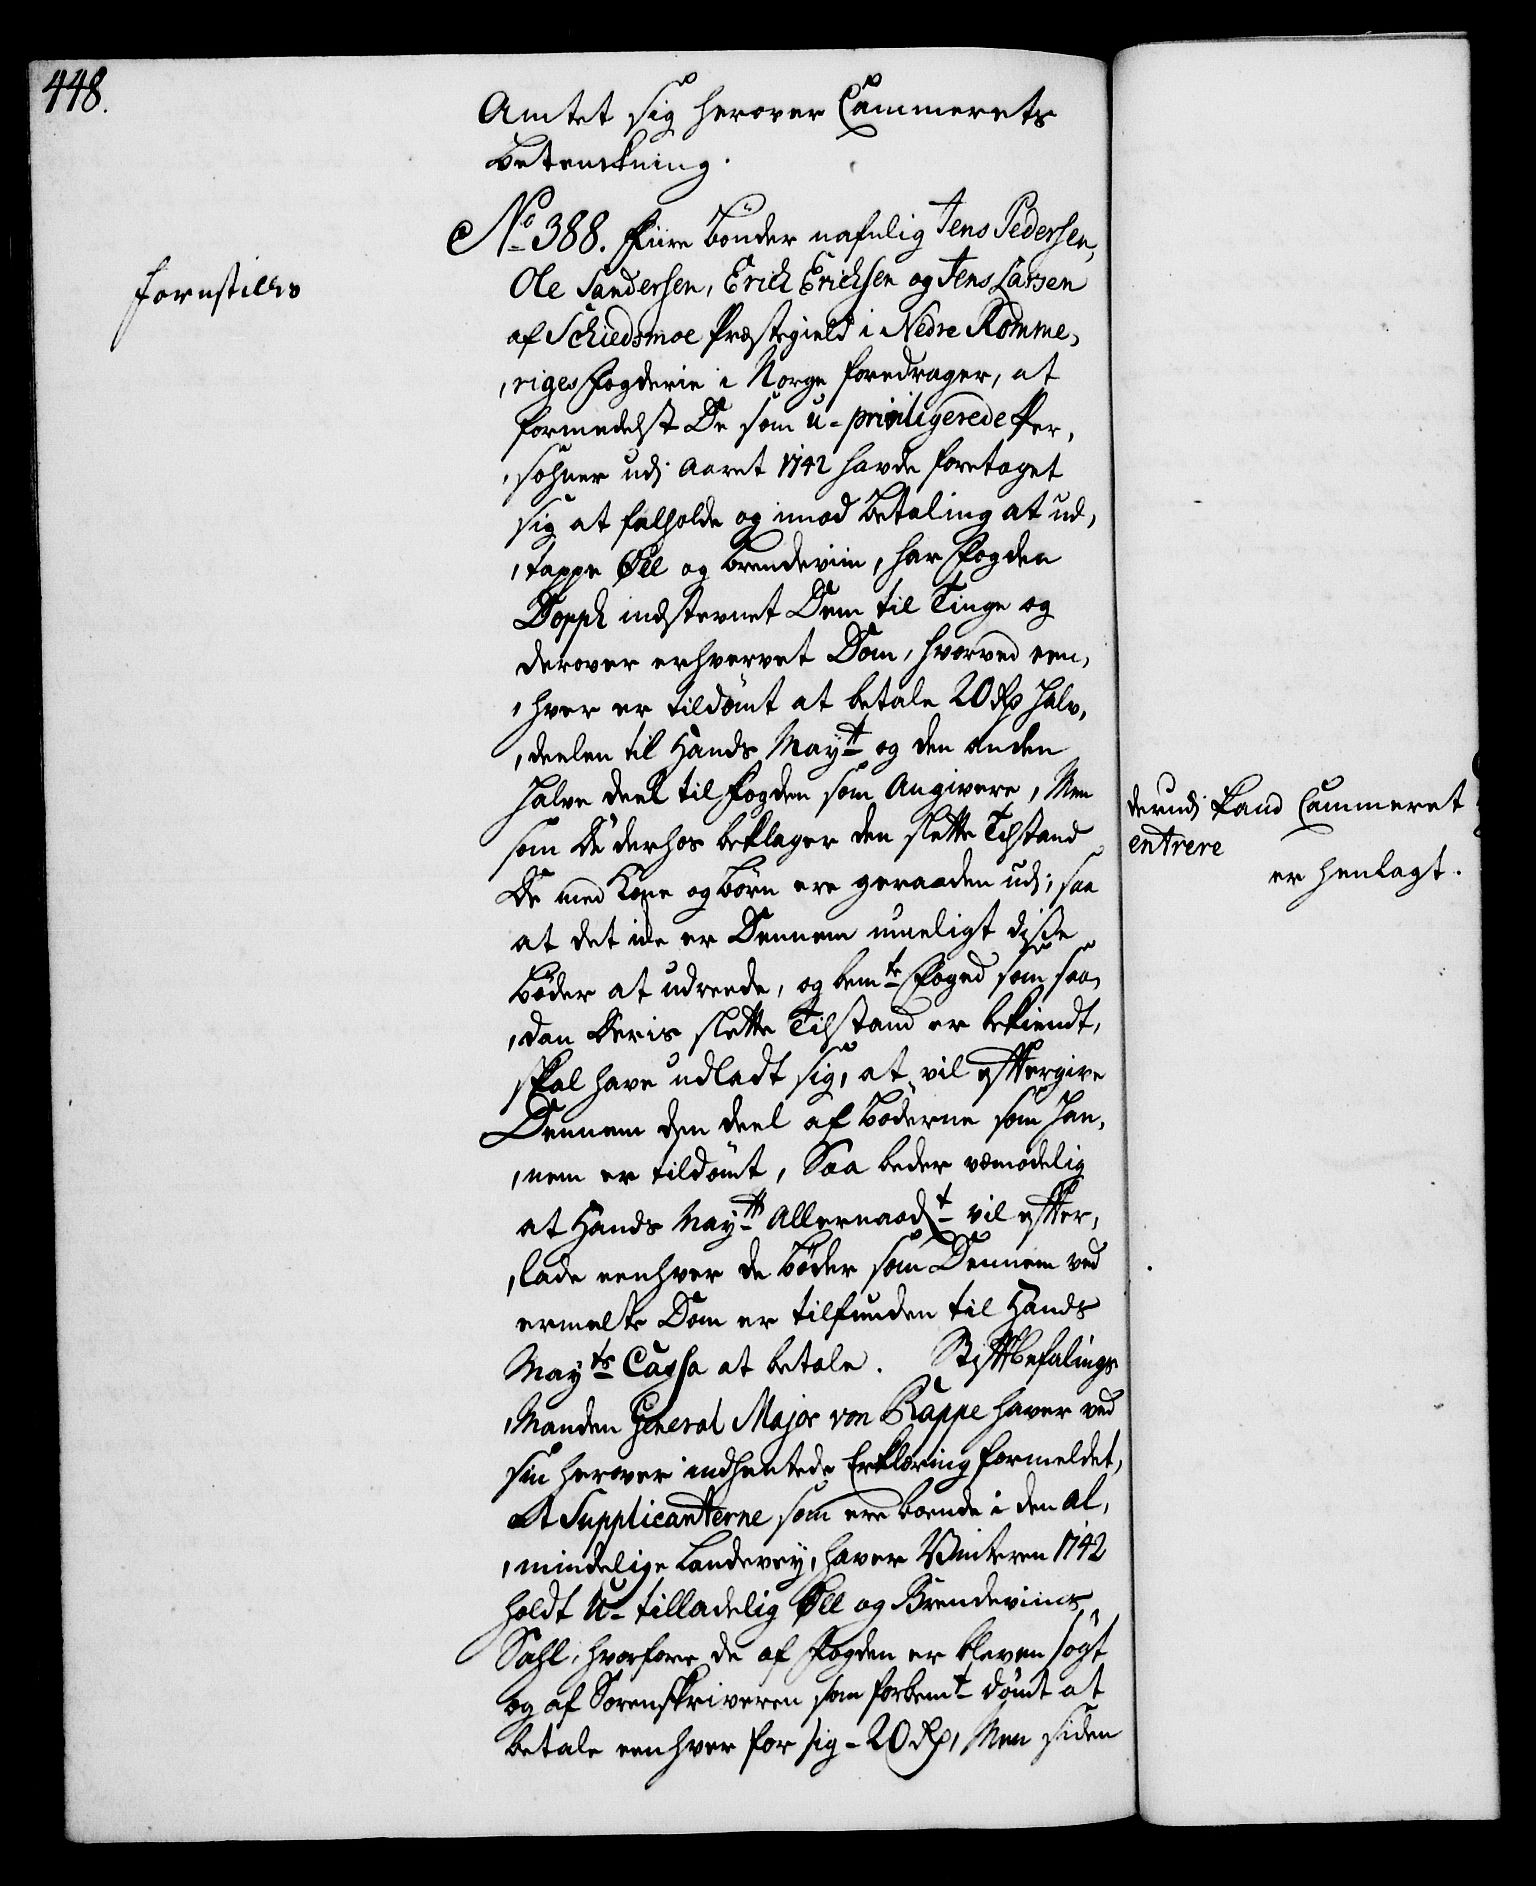 448.
Amtet sig herover Cammerets
Betenckning.
forestilles
No 388. Fiire Bönder nafnlig Jens Pedersen,
Ole Sandersen, Erich Erichsen og Jens Larsen
af Schiedsmoe Præstegield i Nedre Romme,
,riges Fogderie i Norge foredrager, at
formedelst De som u-priviligerede Per,
,sohner udj Aaret 1742 havde foretaget
sig at falholde og imod Betaling at ud,
,tappe Øll og Brendeviin, har Fogden
Dopph indstevnet Dem til Tinge og
derover erhvervet Dom, hvorved een,
,hver er tildömt at betale 20 Rd Halv,
,deelen til Hands Maytt og den anden
Halve deel til Fogden som Angivere, Men
som De derhos beklager den slette Tilstand
De med Kone og Børn ere geraaden udj, saa
at det icke er Dennem mueligt disse
Bøder at udreede, og bemte Foged som saa,
,dan Deris slette Tilstand er bekiendt,
skal have udladt sig, at vil efftergive
Dennem den deel af Bøderne som Han,
,nem er tildömt, Saa beder væmodelig
at Hands Maytt Allernaadt vil effter,
,lade eenhver de Bøder som Dennem ved
ermelte Dom er tilfunden til Hands
Mayts Cassa at betale. Stifftbefalings
,Manden General Major von Rappe haver ved
sin herover indhentede Erklæring formeldet,
at Supplicanterne som ere boende i den al,
,mindelige Landevey, haver Vinteren 1742
holdt U-tilladelig Øll og Brendeviins
Sahl, hvorfore de af Fogden er bleven søgt
og af Sorenskriveren som forbemt dömt at
betale eenhver for sig - 20 Rd, Men siden
derudj Land Cammeret
entrere
er henlagt.